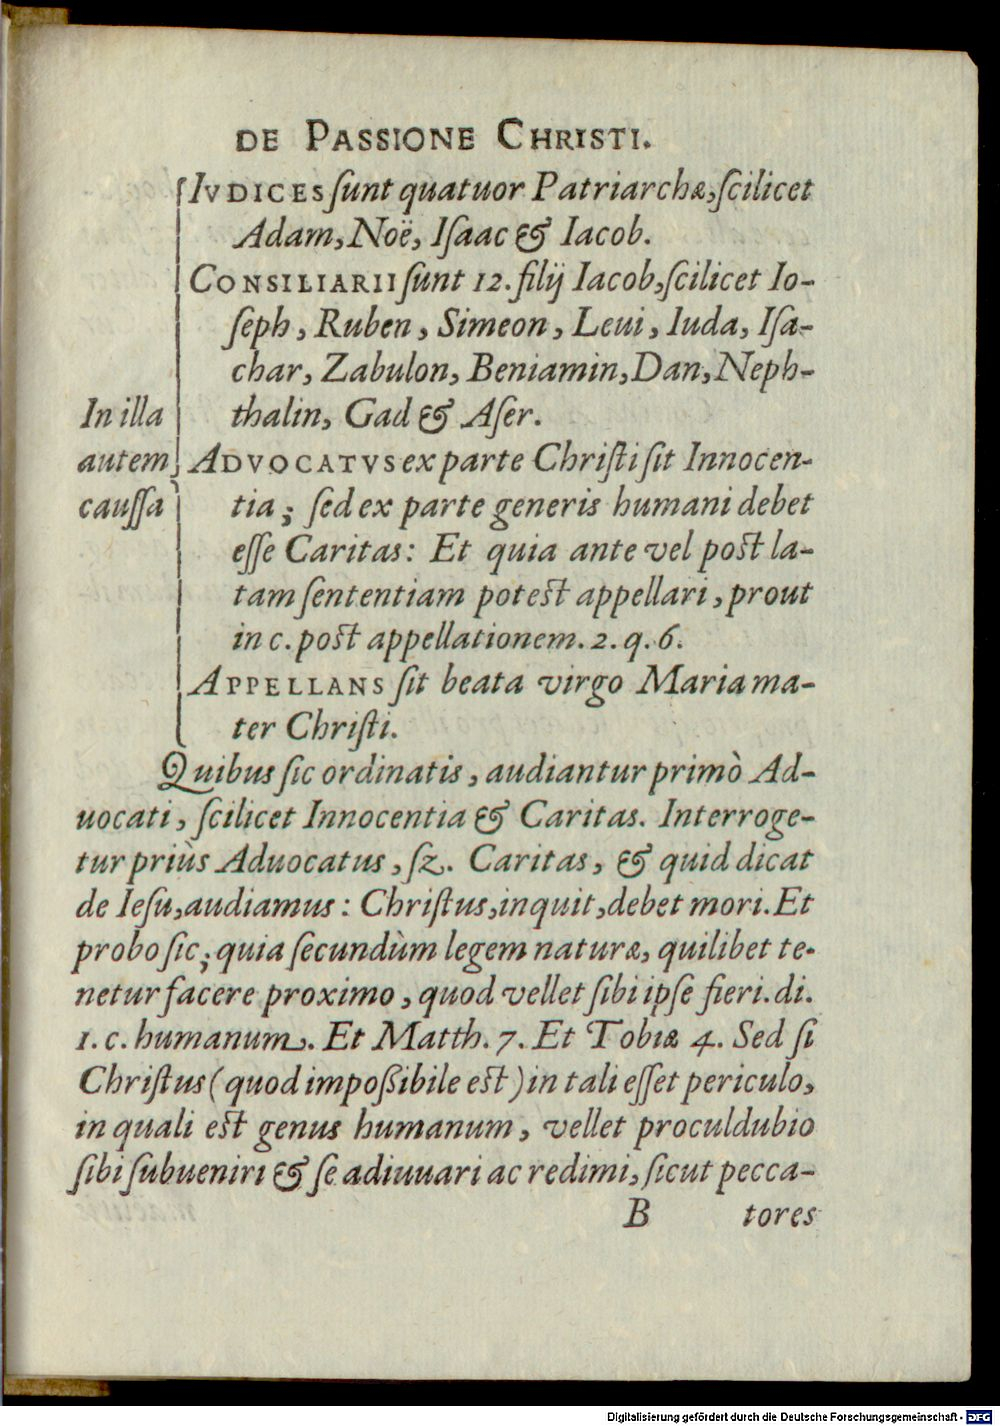 DE PASSIONE CHRISTI.
IVDICES ſunt quatuor Patriarchæ, ſcilicet
Adam, Noë, Iſaac & Iacob.
CONSILIARII ſunt 12. filij Iacob, ſcilicet Io-
ſeph, Ruben, Simeon, Leui, Iuda, Iſa-
char, Zabulon, Beniamin, Dan, Neph-
thalin, Gad & Aſer.
In illa
autem
cauſſa
ADVOCATVS ex parte Chriſti ſit Innocen-
tia; ſed ex parte generis humani debet
eſſe Caritas: Et quia ante vel poſt la-
tam ſententiam poteſt appellari, prout
in c. poſt appellationem. 2. q. 6.
APPELLANS ſit beata virgo Maria ma-
ter Chriſti.
Quibus ſic ordinatis, audiantur primò Ad-
uocati, ſcilicet Innocentia & Caritas. Interroge-
tur priùs Aduocatus, ſz. Caritas, & quid dicat
de Ieſu, audiamus: Chriſtus, inquit, debet mori. Et
probo ſic; quia ſecundùm legem naturæ, quilibet te-
netur facere proximo, quod vellet ſibi ipſe fieri. di.
1. c. humanum. Et Matth. 7. Et Tobiæ 4. Sed ſi
Chriſtus (quod impoßibile eſt) in tali eſſet periculo,
in quali eſt genus humanum, vellet proculdubio
ſibi ſubueniri & ſe adiuuari ac redimi, ſicut pecca-
B tores
Digitalisierung gefördert durch die Deutsche Forschungsgemeinschaft - DFG